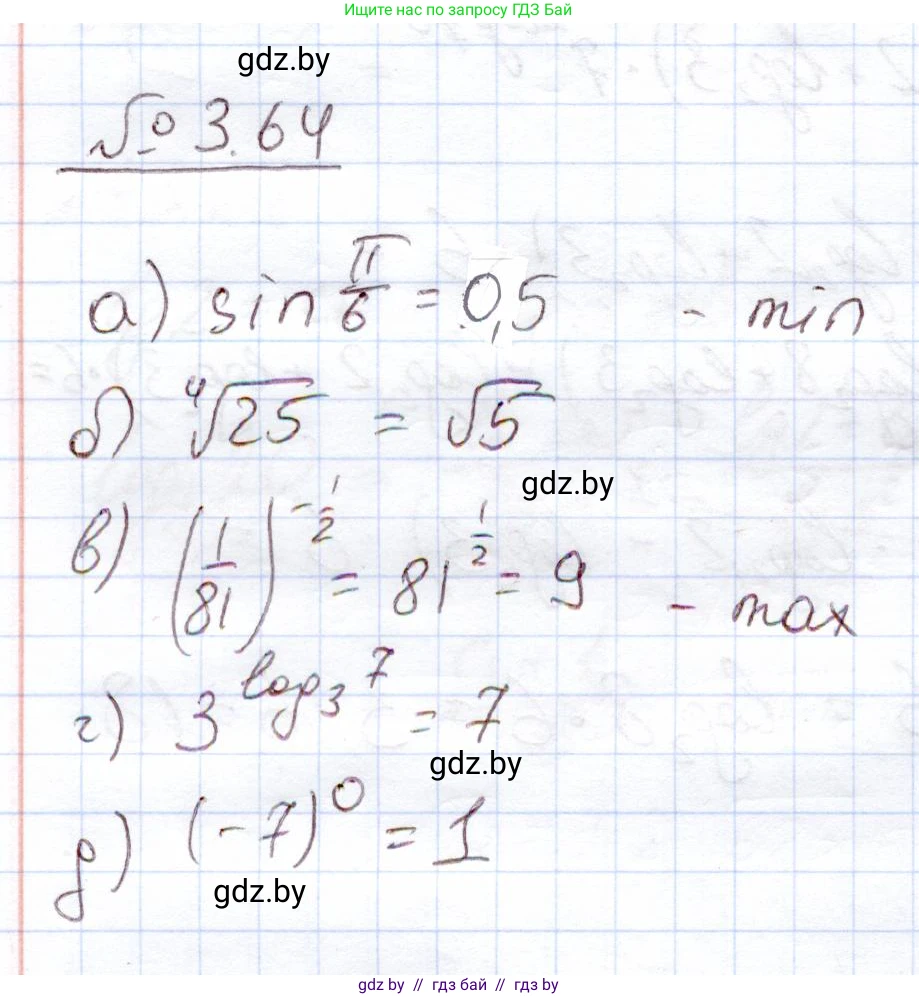 Ищите нас по запросу ГДЗ Бай
gdz.by
№ 3.64
а) sin π/6 = 0,5 - min
б) ⁴√25 = √5
gdz.by
в) (1/81)^(-1/2) = 81^(1/2) = 9 - max
г) 3^(log₃ 7) = 7
gdz.by
д) (-7)^0 = 1
gdz.by
gdz.by // гдз бай // gdz by